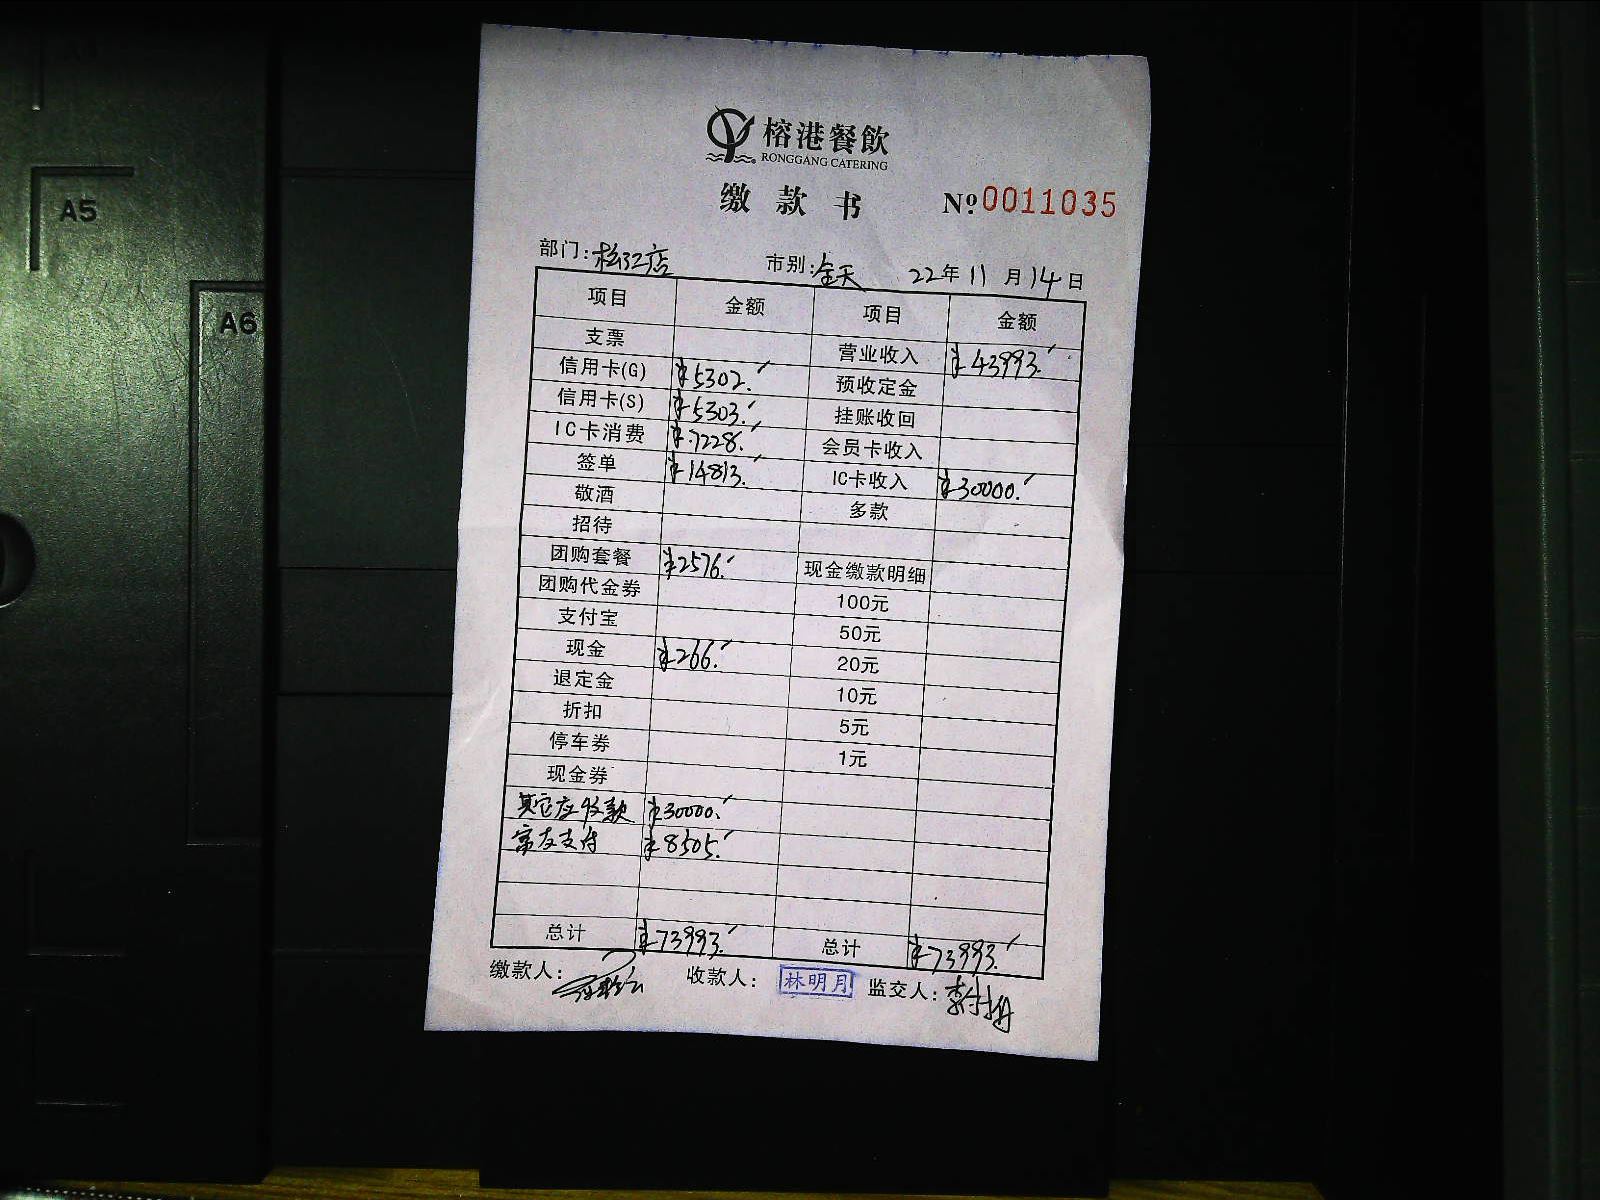 A5
A6
榕港餐飲
RONGGANG CATERING
缴款书 №0011035
部门：松江店 市别：全天 22年11月14日
项目 金额 项目 金额
支票 营业收入 ¥43993.
信用卡(G) ¥5302. 预收定金
信用卡(S) ¥5303. 挂账收回
IC卡消费 ¥7228. 会员卡收入
签单 ¥14813. IC卡收入 ¥30000.
敬酒 多款
招待
团购套餐 ¥2576. 现金缴款明细
团购代金券 100元
支付宝 50元
现金 ¥266. 20元
退定金 10元
折扣 5元
停车券 1元
现金券
其它应收款 ¥30000.
富友支付 ¥8505.
总计 ¥73993. 总计 ¥73993.
缴款人： 收款人： 林明月 监交人：